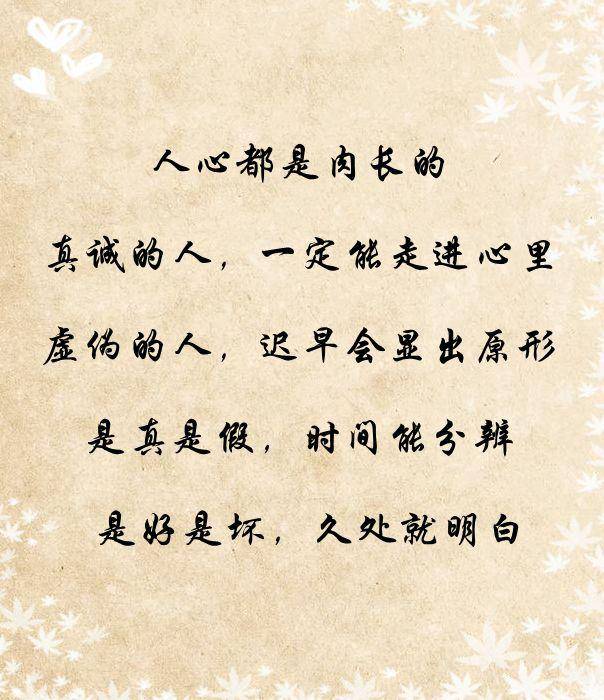 人心都是肉长的
真诚的人，一定能走进心里
虚伪的人，迟早会显出原形
是真是假，时间能分辨
是好是坏，久处就明白